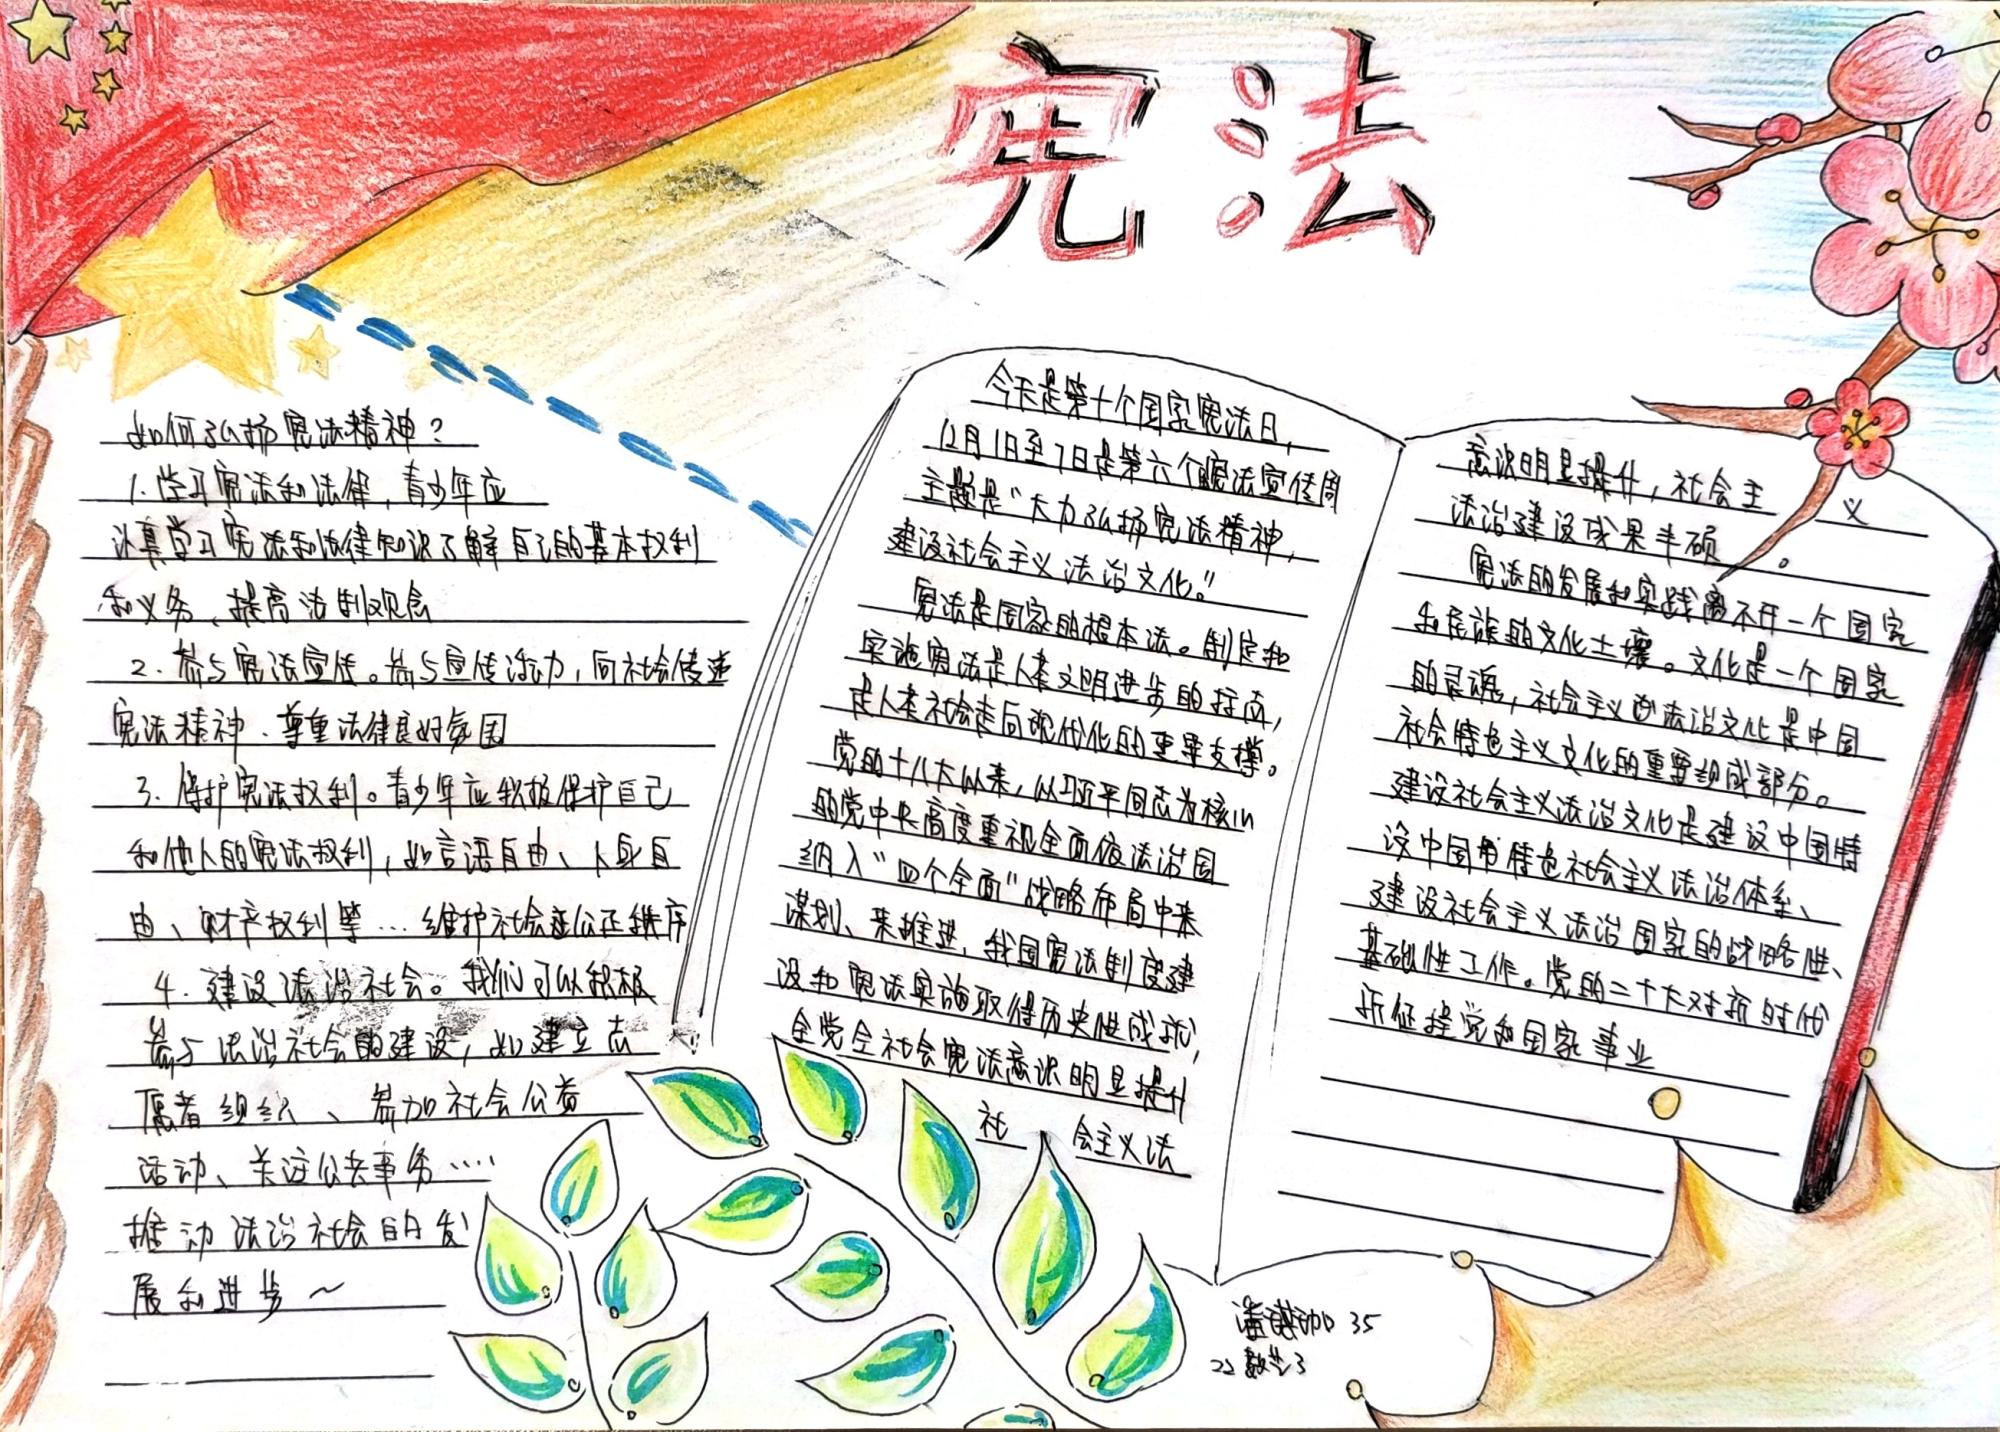 宪法
如何弘扬宪法精神？
1.学习宪法和法律，青少年应
认真学习宪法和法律知识了解自己的基本权利
和义务、提高法制观念
2.参与宪法宣传。参与宣传活动，向社会传递
宪法精神、尊重法律良好氛围
3.保护宪法权利。青少年应积极保护自己
和他人的宪法权利，如言语自由、人身自
由、财产权利等…维护社会公正秩序
4.建设法治社会。我们可以积极
参与法治社会的建设，如建立志
愿者组织、参加社会公益
活动、关注公共事务……
推动法治社会的发
展和进步～
今天是第十个国家宪法日，
12月1日至7日是第六个宪法宣传周
主题是“大力弘扬宪法精神，
建设社会主义法治文化。”
宪法是国家的根本法。制定和
实施宪法是人类文明进步的标志，
是人类社会走向现代化的重要支撑。
党的十八大以来，以习近平同志为核心
的党中央高度重视全面依法治国
纳入“四个全面”战略布局中来
谋划、来推进，我国宪法制度建
设和宪法实施取得历史性成就，
全党全社会宪法意识明显提升
社 会主义法
意识明显提升，社会主义
法治建设成果丰硕。
宪法的发展和实践离不开一个国家
和民族的文化土壤。文化是一个国家
的灵魂，社会主义法治文化是中国
社会特色主义文化的重要组成部分。
建设社会主义法治文化是建设中国特
设中国特色社会主义法治体系、
建设社会主义法治国家的战略性、
基础性工作。党的二十大对新时代
新征程党和国家事业
35
22 数学3